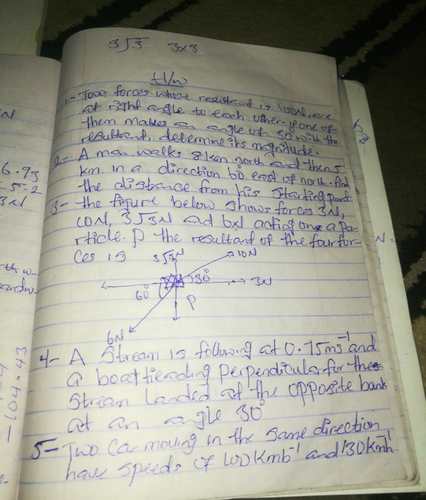 3√3 3x3
H/w
1- Two forces whose resultant is 100N, are
at right angle to each other. If one of
them makes an angle of 30 with the
resultant, determine its magnitude.
2- A man walks 8km north and then 5
km in a direction 60 east of north. find
the distance from his starting point
3- the figure below shows forces 3N,
10N, 3√3N ad 6N acting on a pa-
rticle. P the resultant of the four for-
ces is
3√3N
10N
30°
3N
60°
P
6N
4- A Stream is following at 0.75ms⁻¹ and
a boat heading perpendicular for the
stream landed at the opposite bank
at an angle 30°
5- Two Car moving in the same direction
have speeds of 100Kmh⁻¹ and 130Kmh
6.93
5.2
3N
-104.43